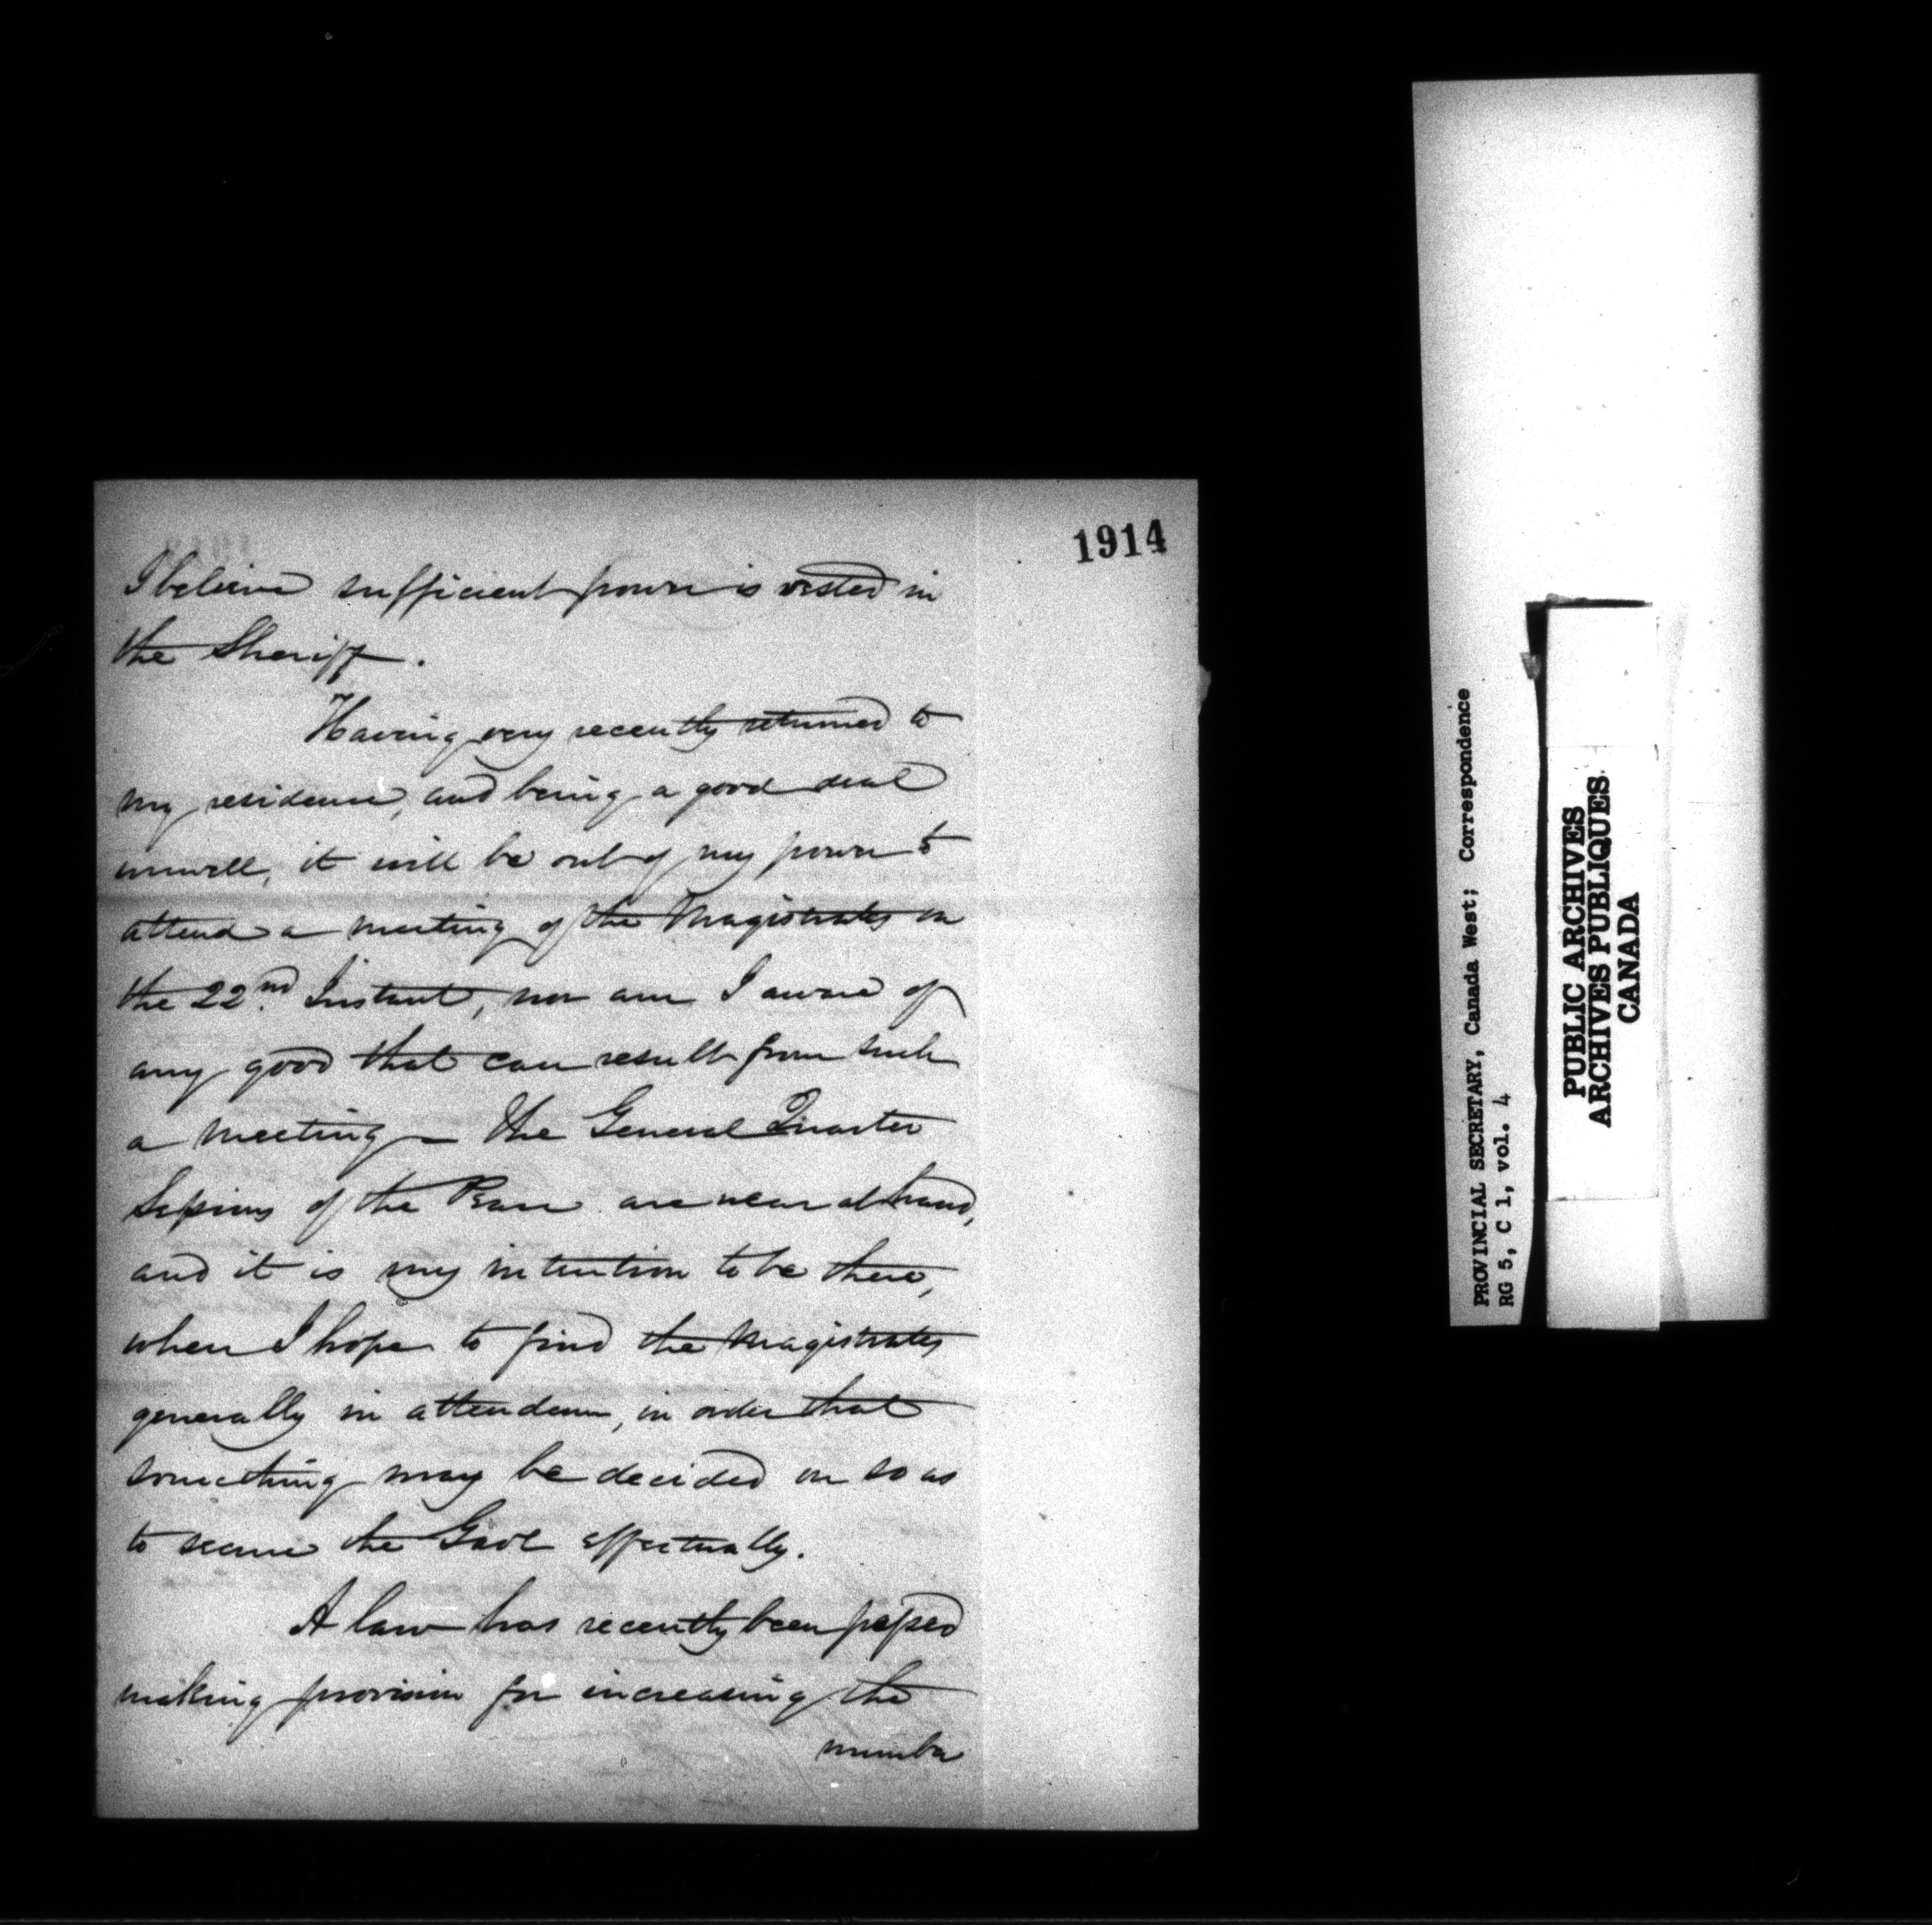 1914
I believe sufficient power is vested in
the Sheriff.
Having very recently returned to
my residence, and being a good deal
unwell, it will be out of my power to
attend a meeting of the Magistrates on
the 22nd. Instant, nor am I aware of
any good that can result from such
a meeting — the General Quarter
Sessions of the Peace are near at hand,
and it is my intention to be there,
when I hope to find the Magistrates
generally in attendance, in order that
something may be decided on so as
to secure the Gaol effectually.
A law has recently been passed
making provision for increasing the
number
PROVINCIAL SECRETARY, Canada West; Correspondence
RG 5, C 1, vol. 4
PUBLIC ARCHIVES
ARCHIVES PUBLIQUES
CANADA